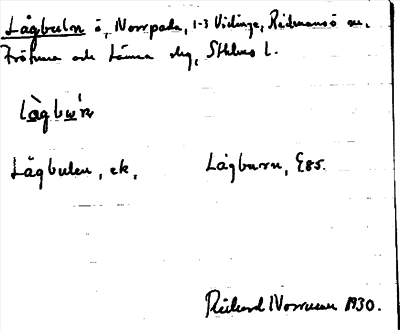 Lågbuln ö, Norrpada, 1-3 Vidinge, Rådmansö sn.
Frötuna och Länna skg, Sthlms l.
làgbu'n
Lågbulen, ek,    Lågburn, G85.
Rikard Norrman 1930.